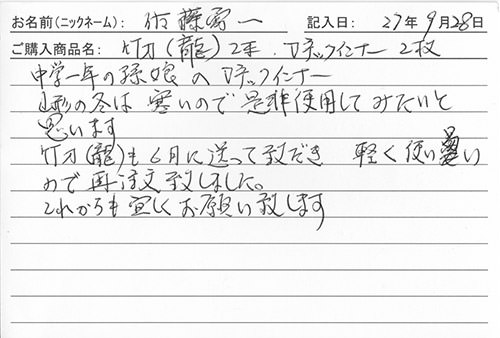 お名前(ニックネーム): 佐藤 一 記入日: 27年9月28日
ご購入商品名: 竹刀(龍)2本. マチックインナー 2枚
中学一年の孫娘へ マチックインナー
山形の冬は寒いので是非使用してみたいと
思います
竹刀(龍)も6月に送って致だき 軽く使い易い
ので再注文致しました。
これからも宜しくお願い致します